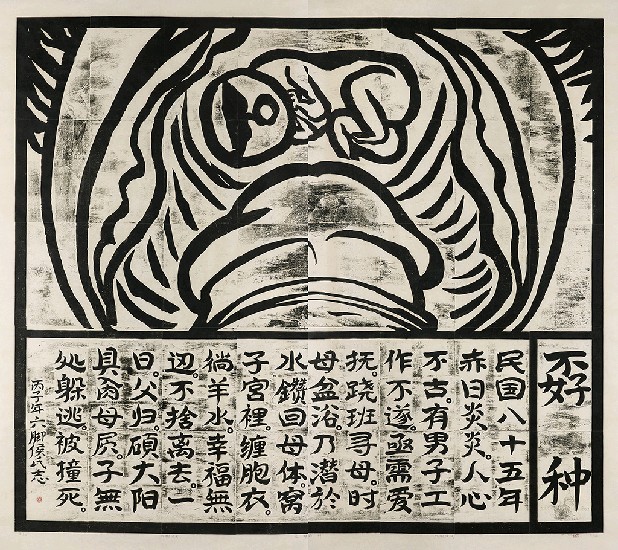 孬种
民国八十五年
赤日炎炎。人心
不古。有男子工
作不遂。亟需爱
抚。跷班寻母。时
母盆浴。乃潜於
水。鑽回母体。窝
子宫裡。缠胞衣。
徜羊水。幸福無
边。不捨离去。一
日。父归。碩大阳
具肏母屄。子無
处躲逃。被撞死。
丙子年六脚侯氏志